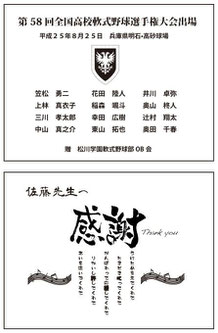 第58回全国高校軟式野球選手権大会出場
平成25年8月25日 兵庫県明石・高砂球場
笠松 勇二 花田 陸人 井川 卓弥
上林 真衣子 稲森 颯斗 奥山 柊人
三川 孝太郎 幸田 広樹 辻村 翔太
中山 真之介 東山 拓也 奥田 千春
贈 松川学園軟式野球部OB会
佐藤先生へ
感謝
Thank you
ささえてくれて